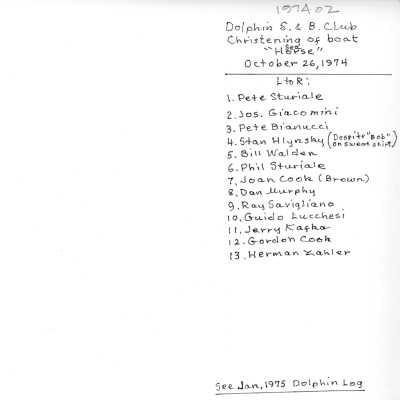 197402
Dolphin S. & B. Club
Christening of boat
Sea
"Horse"
October 26, 1974
L to R:
1. Pete Sturiale
2. Jos. Giacomini
3. Pete Bianucci
4. Stan Hlynsky (Despite "Bob" on sweatshirt)
5. Bill Walden
6. Phil Sturiale
7. Joan Cook (Brown)
8. Dan Murphy
9. Ray Savigliano
10. Guido Lucchesi
11. Jerry Kafka
12. Gordon Cook
13. Herman Zahler
See Jan, 1975 Dolphin Log